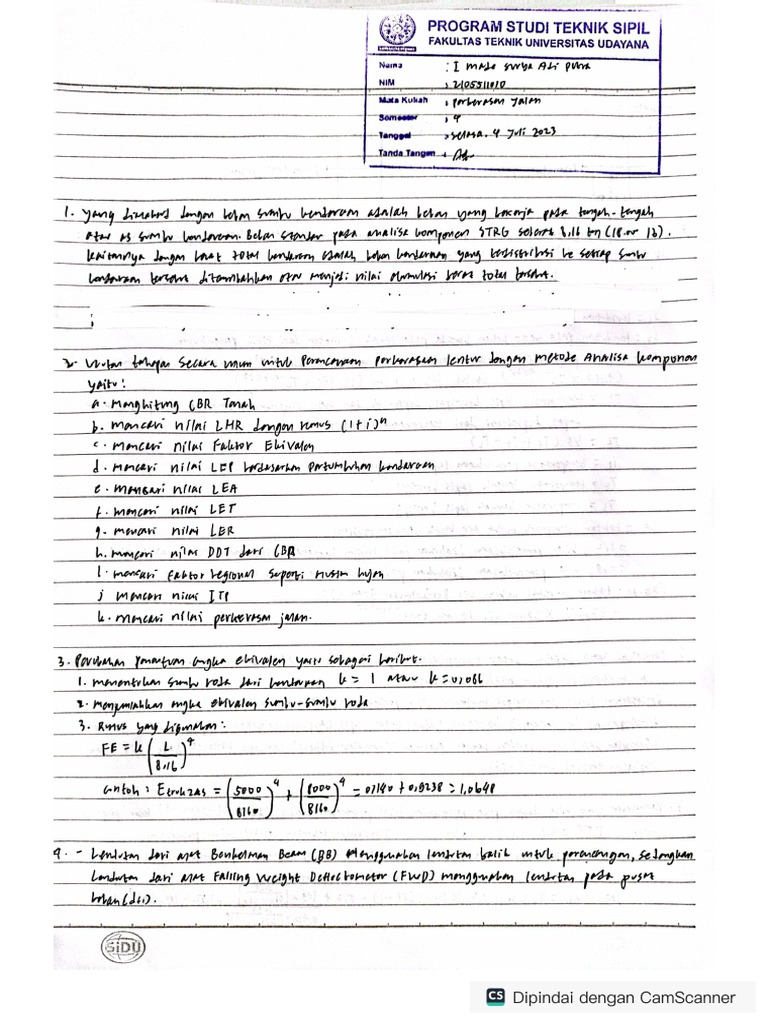 PROGRAM STUDI TEKNIK SIPIL
FAKULTAS TEKNIK UNIVERSITAS UDAYANA
Nama : I made surya Adi putra
NIM : 2105511010
Mata Kuliah : perkerasan jalan
Semester : 4
Tanggal : selasa, 4 Juli 2023
Tanda Tangan :
1. yang dimaksud dengan beban sumbu kendaraan adalah beban yang bekerja pada tengah-tengah
atau as sumbu kendaraan. Beban standar pada analisa komponen STRG sebesar 8,16 ton (18.000 lb).
kaitannya dengan berat total kendaraan adalah beban kendaraan yang terdistribusi ke setiap sumbu
kendaraan tersebut ditambahkan atau menjadi nilai akumulasi berat total tersebut.
2. Urutan tahapan secara umum untuk perencanaan perkerasan lentur dengan metode Analisa komponen
yaitu :
a. menghitung CBR Tanah
b. mencari nilai LHR dengan rumus (1+i)ⁿ
c. mencari nilai Faktor Ekivalen
d. mencari nilai LEP berdasarkan pertumbuhan kendaraan
e. mencari nilai LEA
f. mencari nilai LET
g. mencari nilai LER
h. mencari nilai DDT dari CBR
i. mencari faktor regional seperti musim hujan
j mencari nilai ITP
k. mencari nilai perkerasan jalan.
3. Perubahan penentuan angka ekivalen yaitu sebagai berikut.
1. menentukan sumbu roda dari kendaraan k = 1 atau k = 0,086
2. menjumlahkan angka ekivalen sumbu-sumbu roda
3. Rumus yang digunakan :
FE = k (L / 8,16)⁴
contoh : Etruk2as = (5000 / 8160)⁴ + (8000 / 8160)⁴ = 0,1410 + 0,9238 = 1,0648
4. - Lendutan dari alat Benkelman Beam (BB) menggunakan lendutan balik untuk perencanaan, sedangkan
lendutan dari alat Falling Weight Deflectometer (FWD) menggunakan lendutan pada pusat
beban
SiDU
CS Dipindai dengan CamScanner